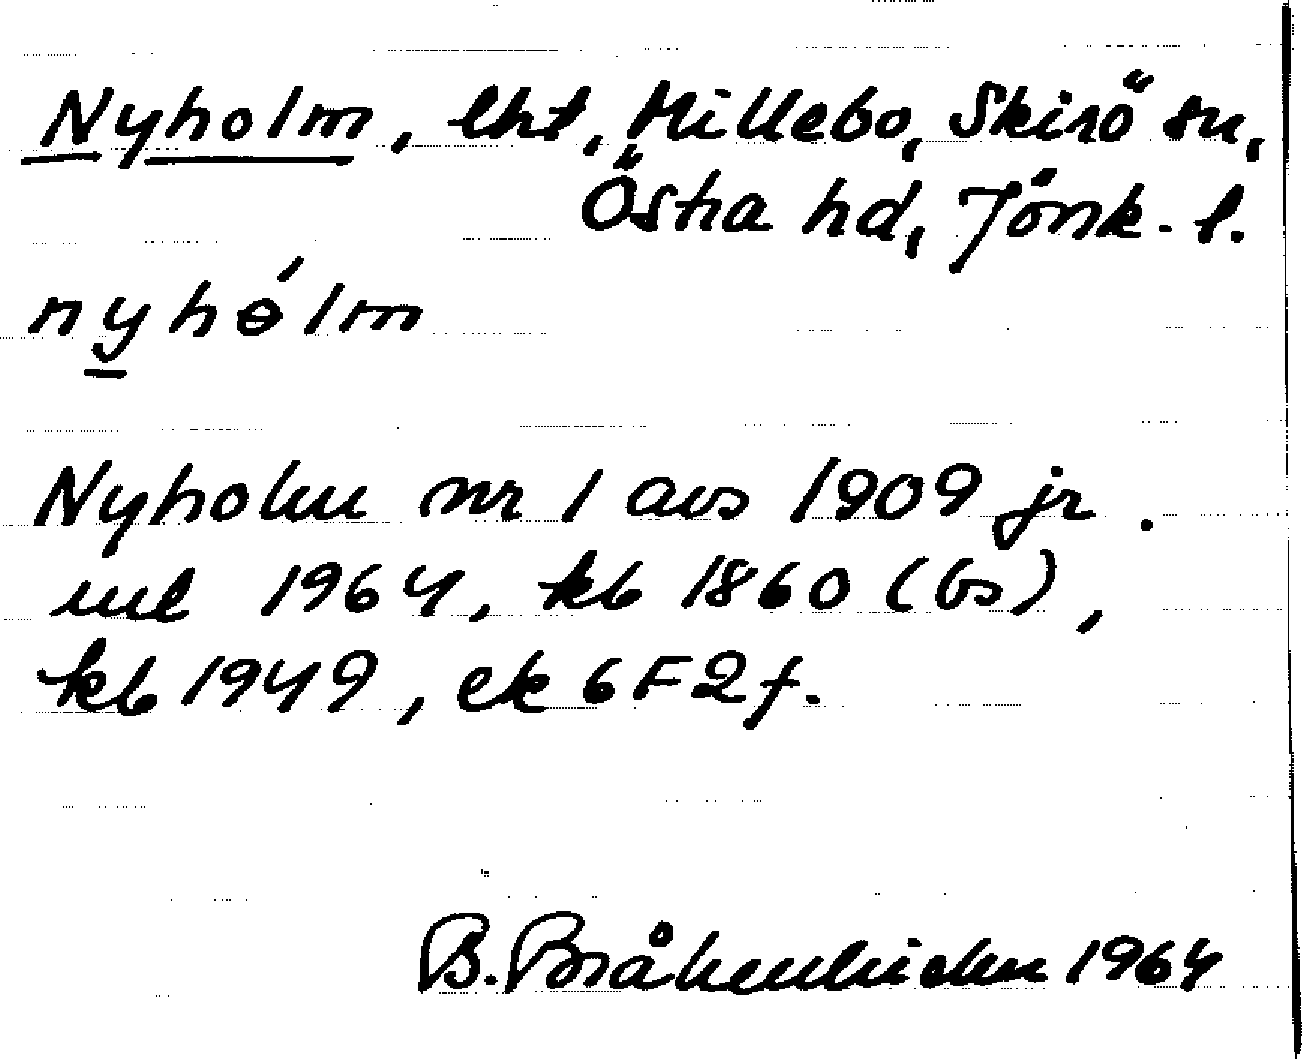 Nyholm, lht, Millebo, Skirö sn,
Östra hd, Jönk. l.
nyhólm
Nyholm nr 1 avs 1909 jr.
ml 1964, kb 1860 (bs),
kb 1949, ek 6F2f.
B. 1964